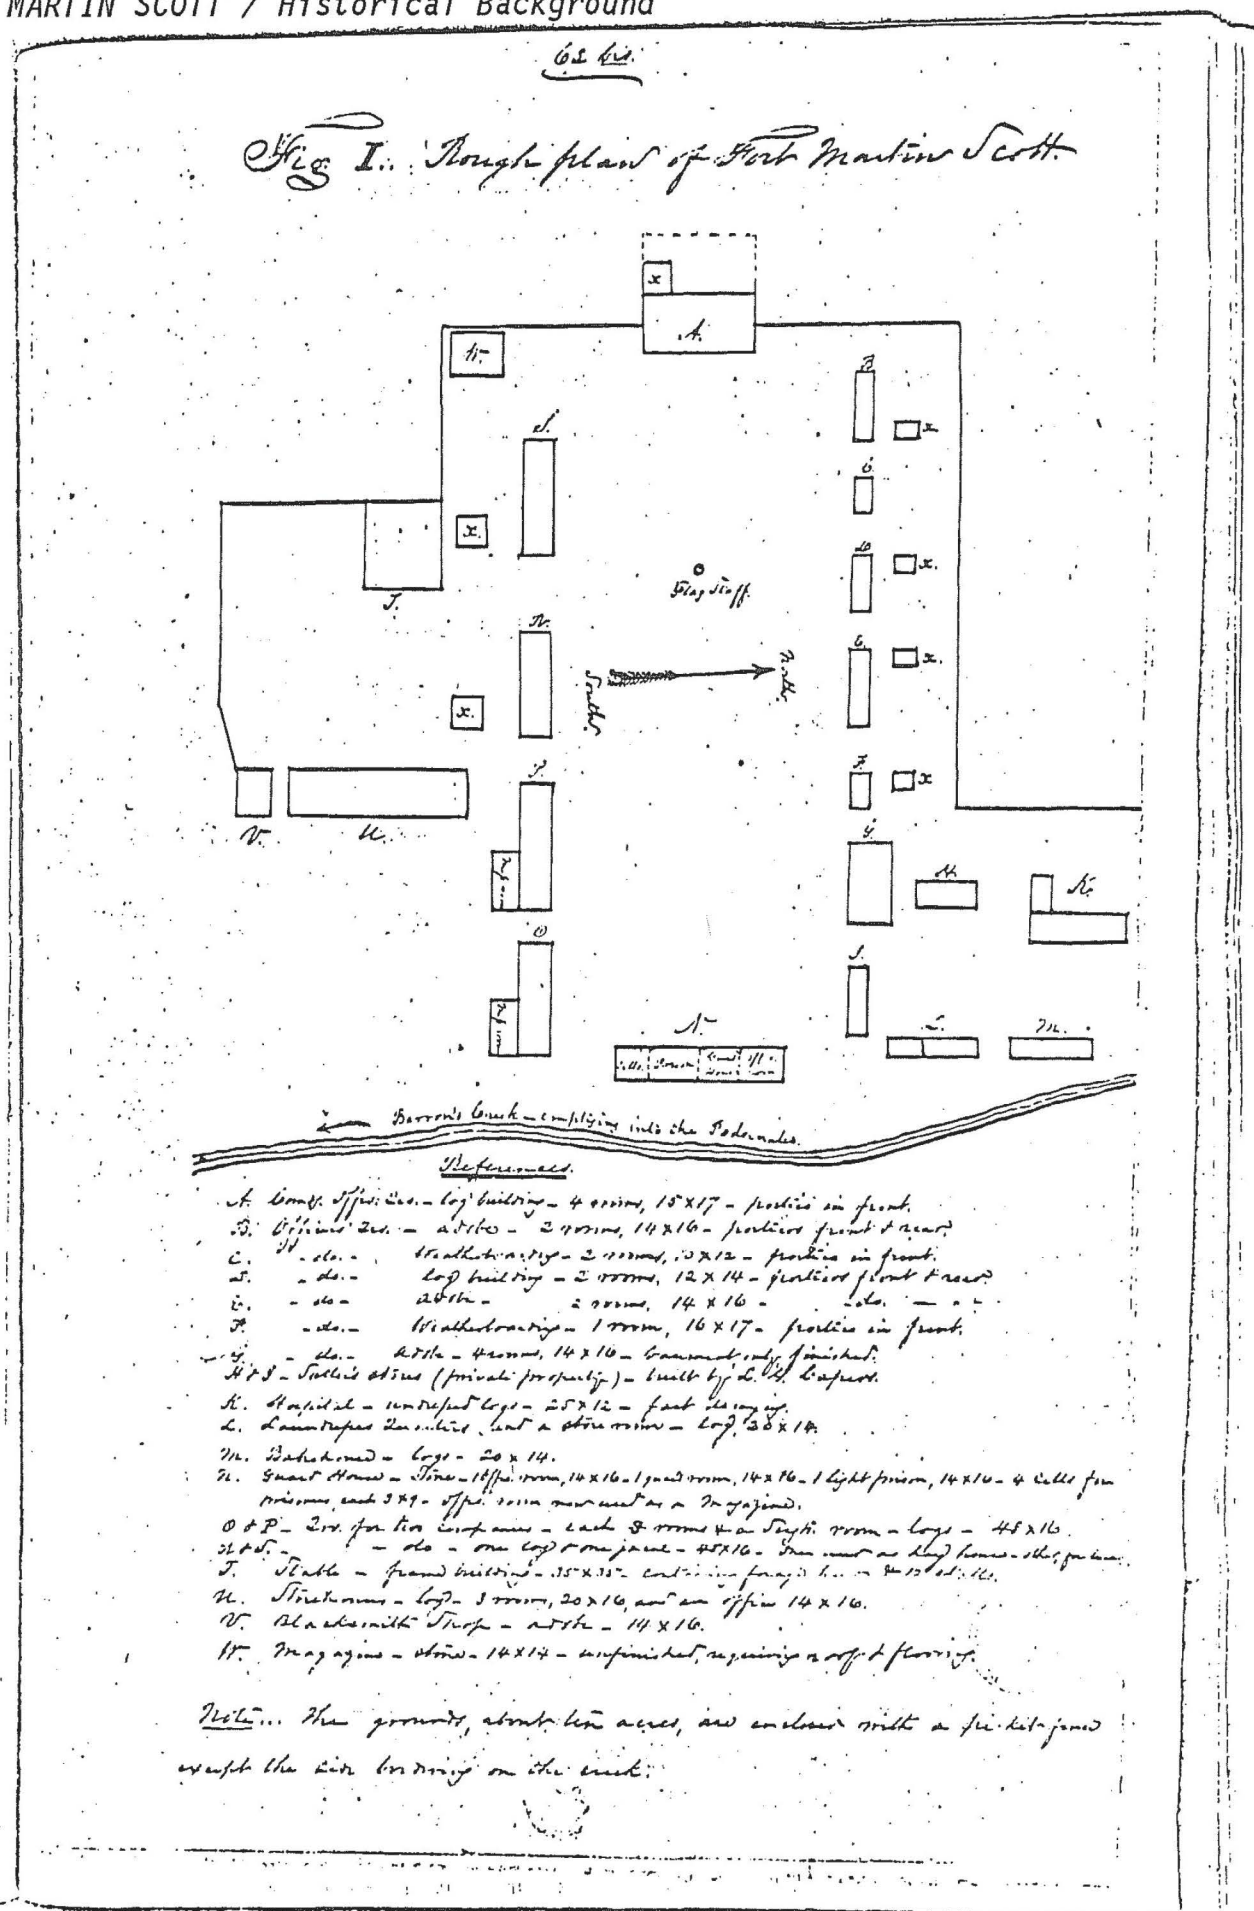 MARTIN SCOTT / Historical Background
62 bis.
Fig I.. Rough plan of Fort Martin Scott.
x
A.
W.
B
x
S.
C
x.
D
x.
Flag Staff.
T.
R.
E.
x.
South.
North.
x.
P
F.
x
V.
U.
G.
H.
K.
O
I.
N
L.
M.
Cells
Prison
Guard Room
Off. room
Barron's Creek - emptying into the Pedernales.
References.
A. Comg. Offrs. Qrs. - log building - 4 rooms, 15 x 17 - portico in front.
B. Officers Qrs. - adobe - 2 rooms, 14 x 16 - porticos front & rear
C. " - do. - Weatherboarding - 2 rooms, x 12 - portico in front.
D. - do. - log building - 2 rooms, 12 x 14 - porticos front & rear
E. - do - adobe - 2 rooms, 14 x 16 - - do. -
F. - do. - Weatherboarding - 1 room, 16 x 17 - portico in front.
G - do. - adobe - 4 rooms, 14 x 16 - basement only finished.
H & I - Sutler's stores (private property) - built by
K. Hospital - logs - 25 x 12 - fast decaying.
L. Laundress Quarters, and a store room - log, x 14.
M. Bakehouse - logs - 20 x 14.
N. Guard House - - 1 Offr. room, 14 x 16 - 1 guard room, 14 x 16 - 1 light prison, 14 x 16 - 4 Cells for
prisoners, each 3 x 9 - offs. room now used as a Magazine.
O & P - Qrs. for two companies - each rooms & a room - logs - 45 x 16.
R & S. - - do - one log & one - 45 x 16 - one used as house -
T. Stable - frame building - 35 x 35 - containing forage
U. Storehouse - log - 3 rooms, 20 x 16, and an office 14 x 16.
V. Blacksmith Shop - adobe - 14 x 16.
W. Magazine - stone - 14 x 14 - unfinished, requiring roof & flooring.
Note... The grounds, about ten acres, are enclosed with a picket
except the side bordering on the creek.